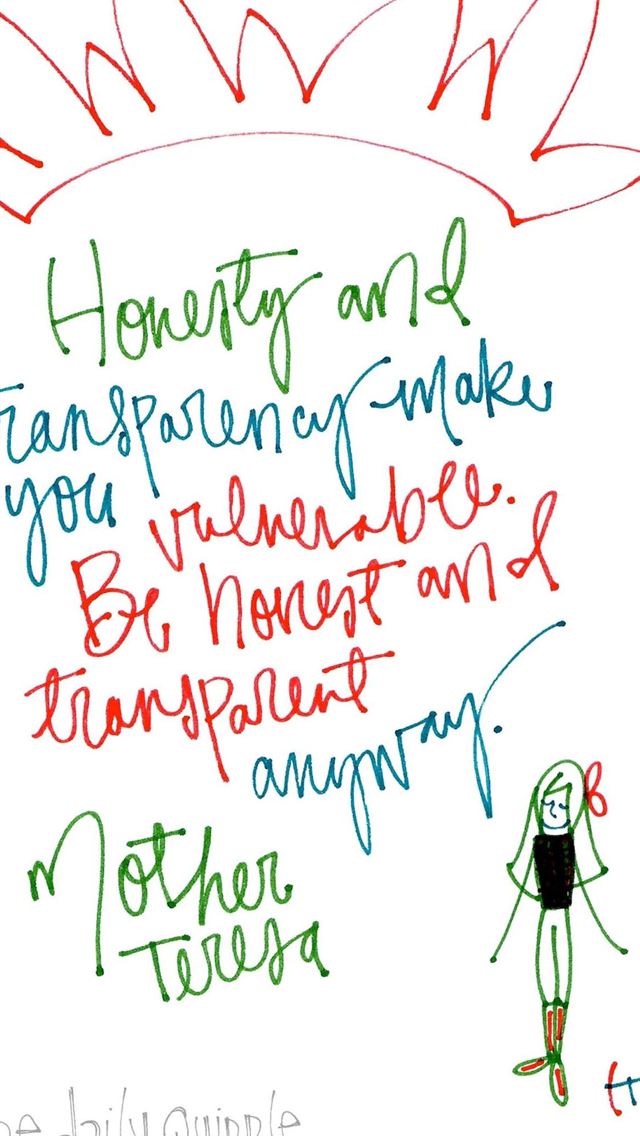 Honesty and
transparency make
you vulnerable.
Be honest and
transparent
anyway.
Mother
Teresa
daily Quipple